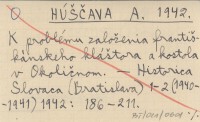 O HÚŠČAVA A. 1942.
K problému založenia františ-
kánskeho kláštora a kostola
v Okoličnom. — Historica
Slovaca (Bratislava) 1-2 (1940-
-1941) 1942: 186-211.